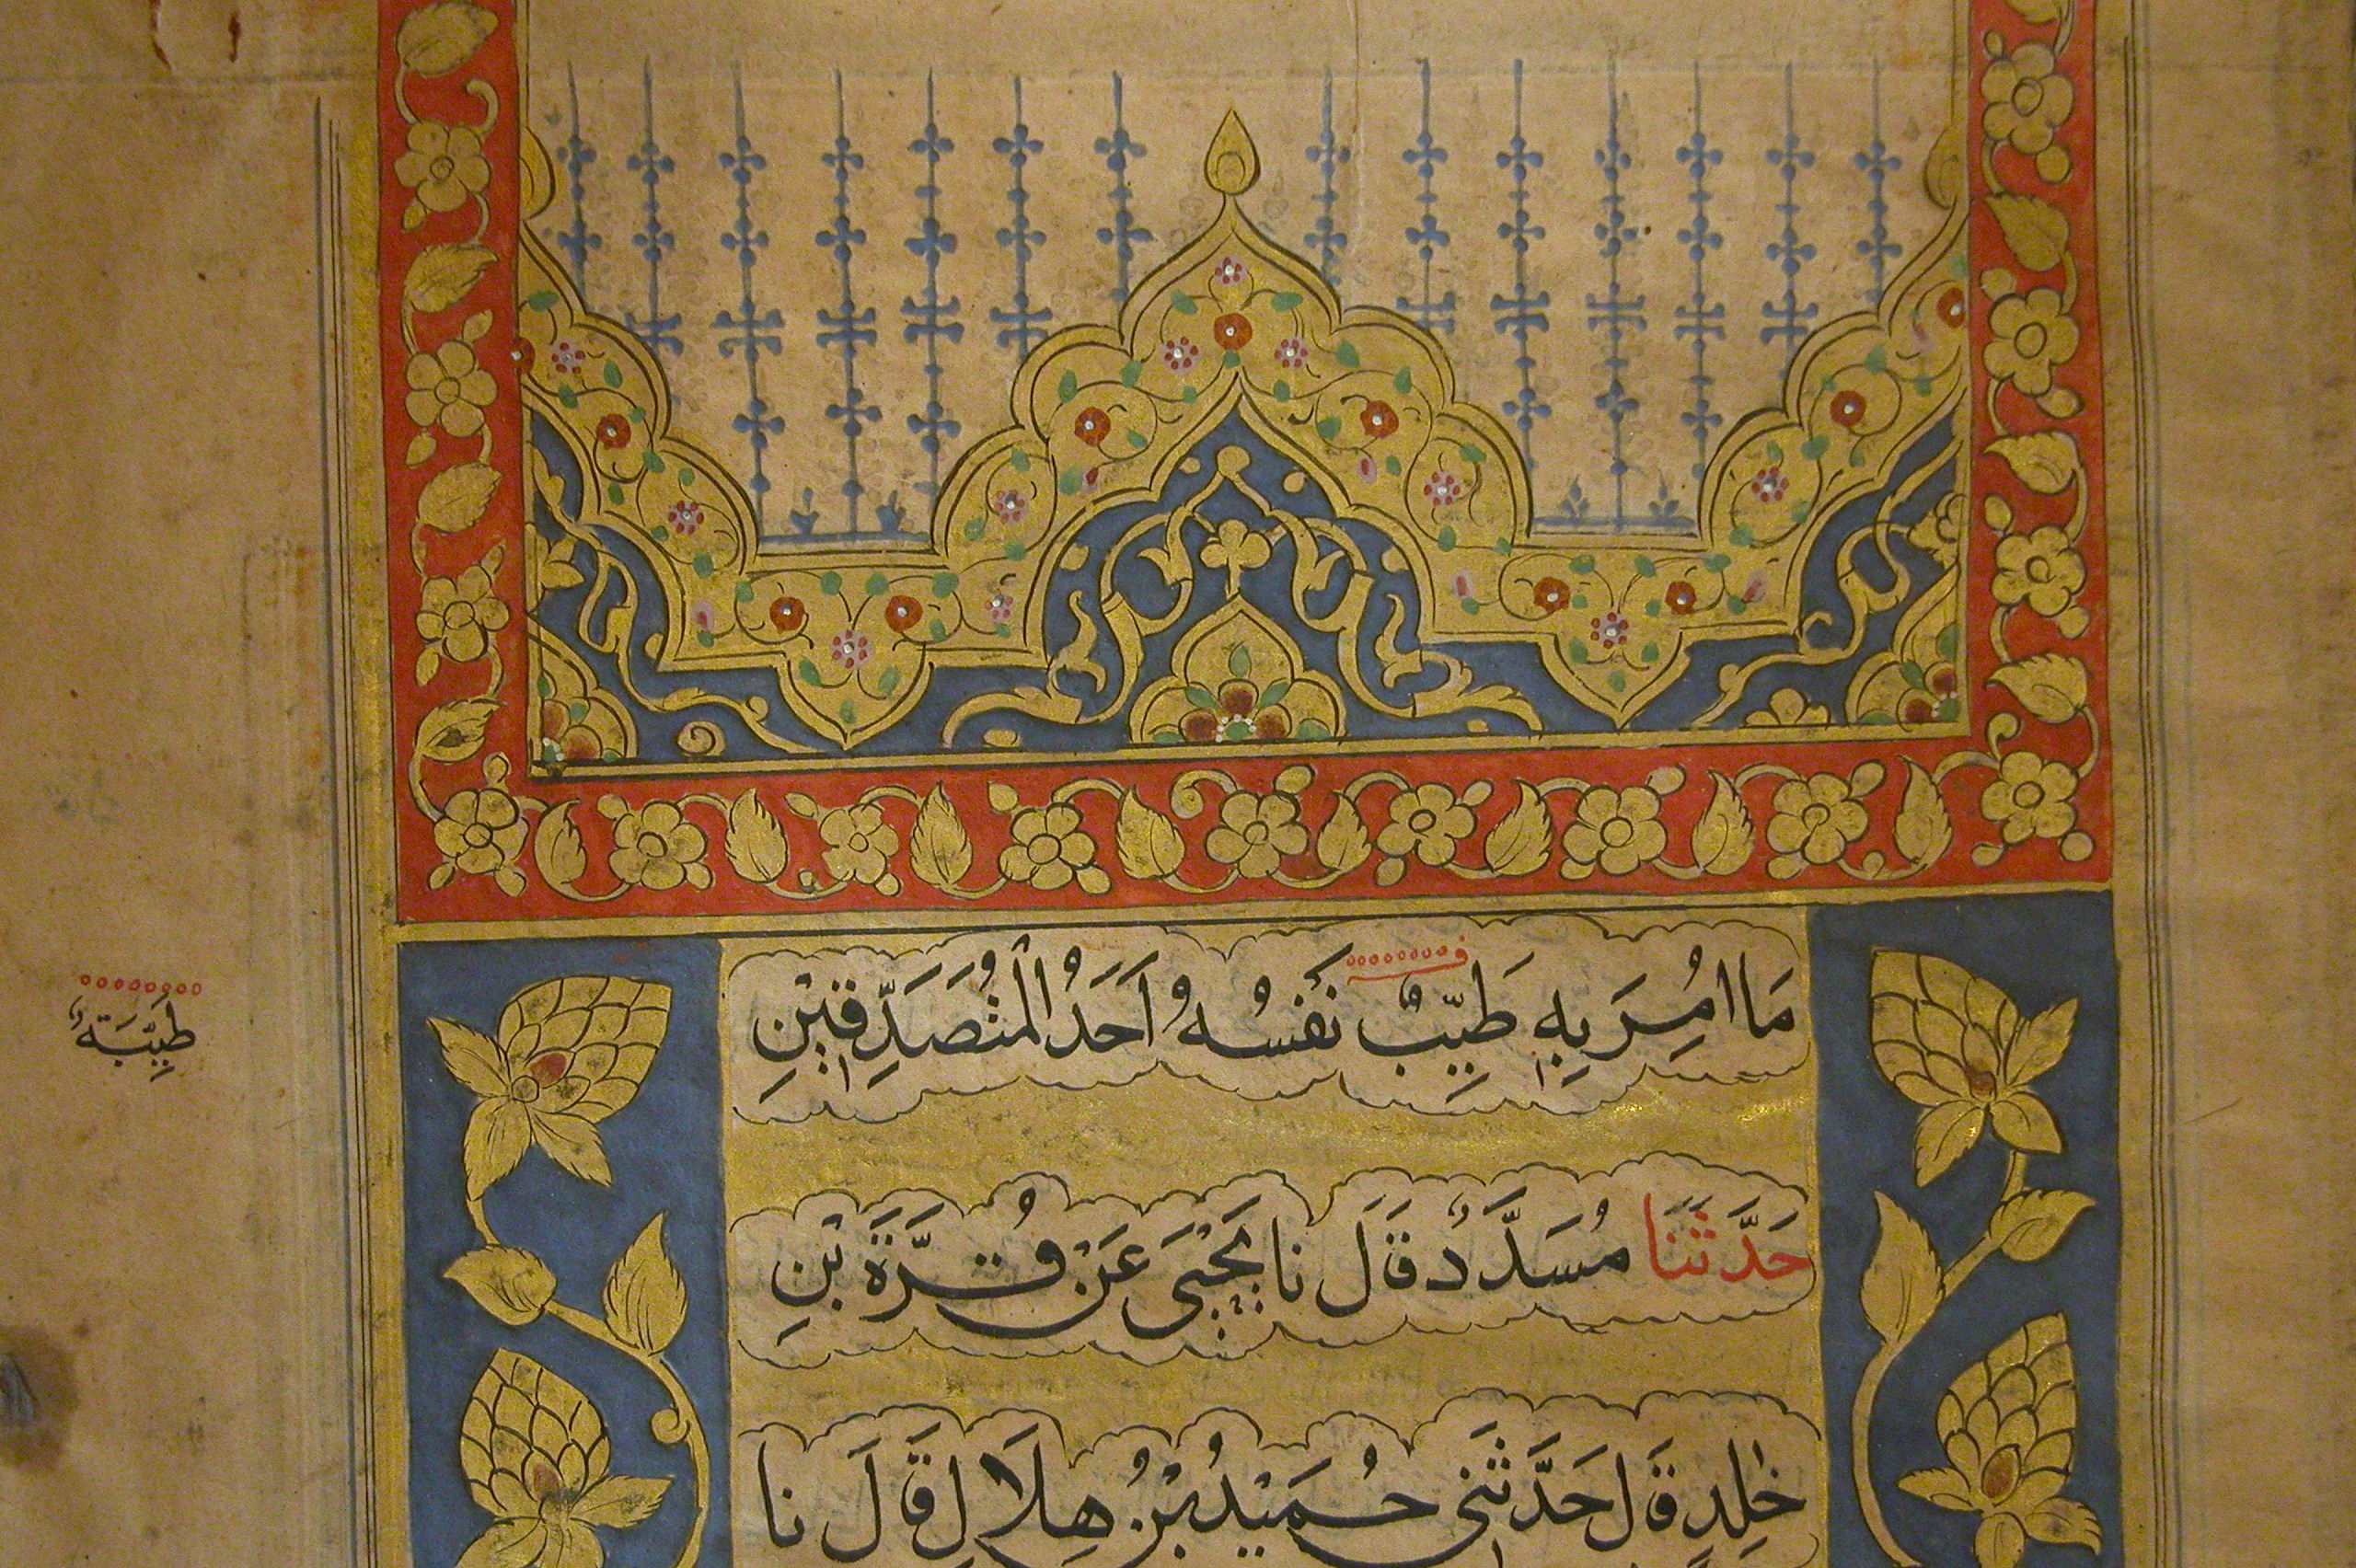 مَا اُمِرَ بِهِ طَيِّبٌ نَفْسُهُ وُ اَحَدُ الْمُتَصَدِّقَيْنِ
طَيِّبَةٌ
حَدَّثَنَا مُسَدَّدٌ قَالَ نَا يَحْيَى عَنْ قُرَّةَ بْنِ
خٰلِدٍ قَالَ حَدَّثَنِى حُمَيْدُ بْنُ هِلَالٍ قَالَ نَا